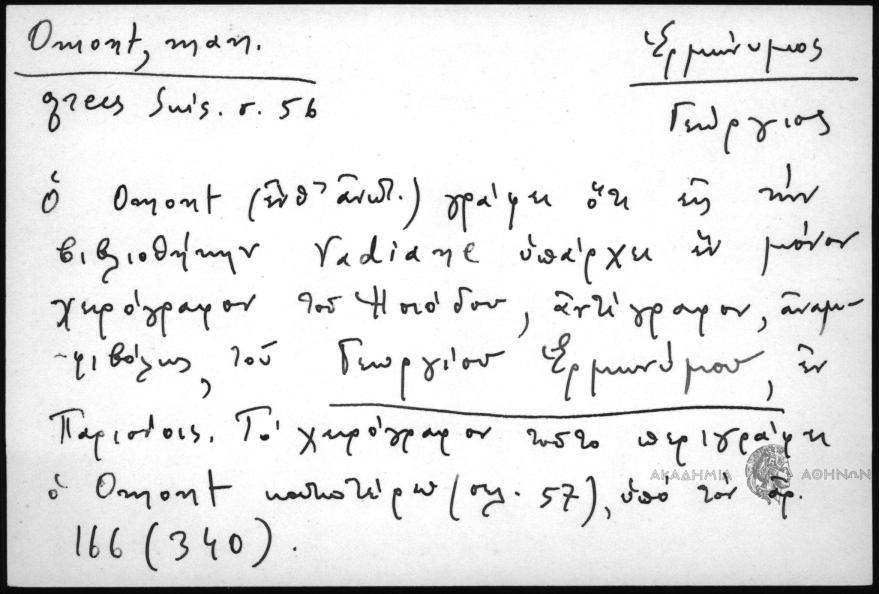 Omont, man.
grecs Suis. σ. 56
Ἑρμώνυμος
Γεώργιος
Ὁ Omont (ἔνθ' ἀνωτ.) γράφει ὅτι εἰς τὴν
βιβλιοθήκην Vadiane ὑπάρχει ἓν μόνον
χειρόγραφον τοῦ Ἡσιόδου, ἀντίγραφον, ἀναμ-
φιβόλως, τοῦ Γεωργίου Ἑρμωνύμου, ἐν
Παρισίοις. Τὸ χειρόγραφον τοῦτο περιγράφει
ὁ Omont κατωτέρω (σελ. 57), ὑπὸ τὸν ἀρ.
166 (340).
ΑΚΑΔΗΜΙΑ ΑΘΗΝΩΝ